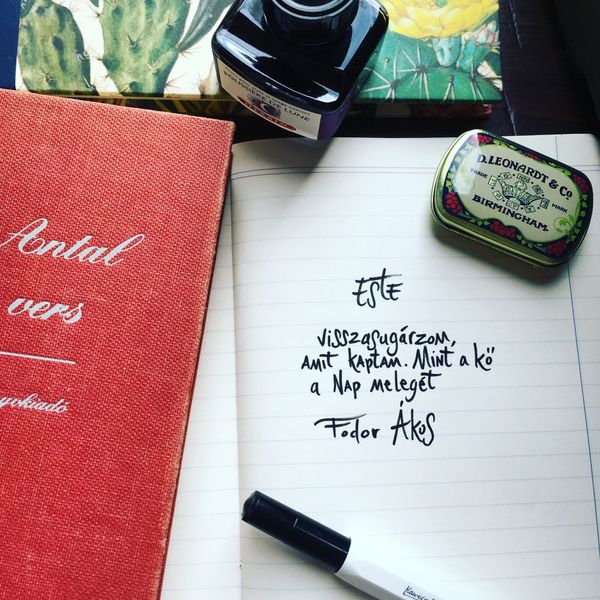 POUSSIÈRE DE LUNE
D. LEONARDT & Co.
TRADE MARK
BIRMINGHAM.
Antal
vers
ESTE
visszasugárzom,
amit kaptam. Mint a kő
a Nap melegét
Fodor Ákos